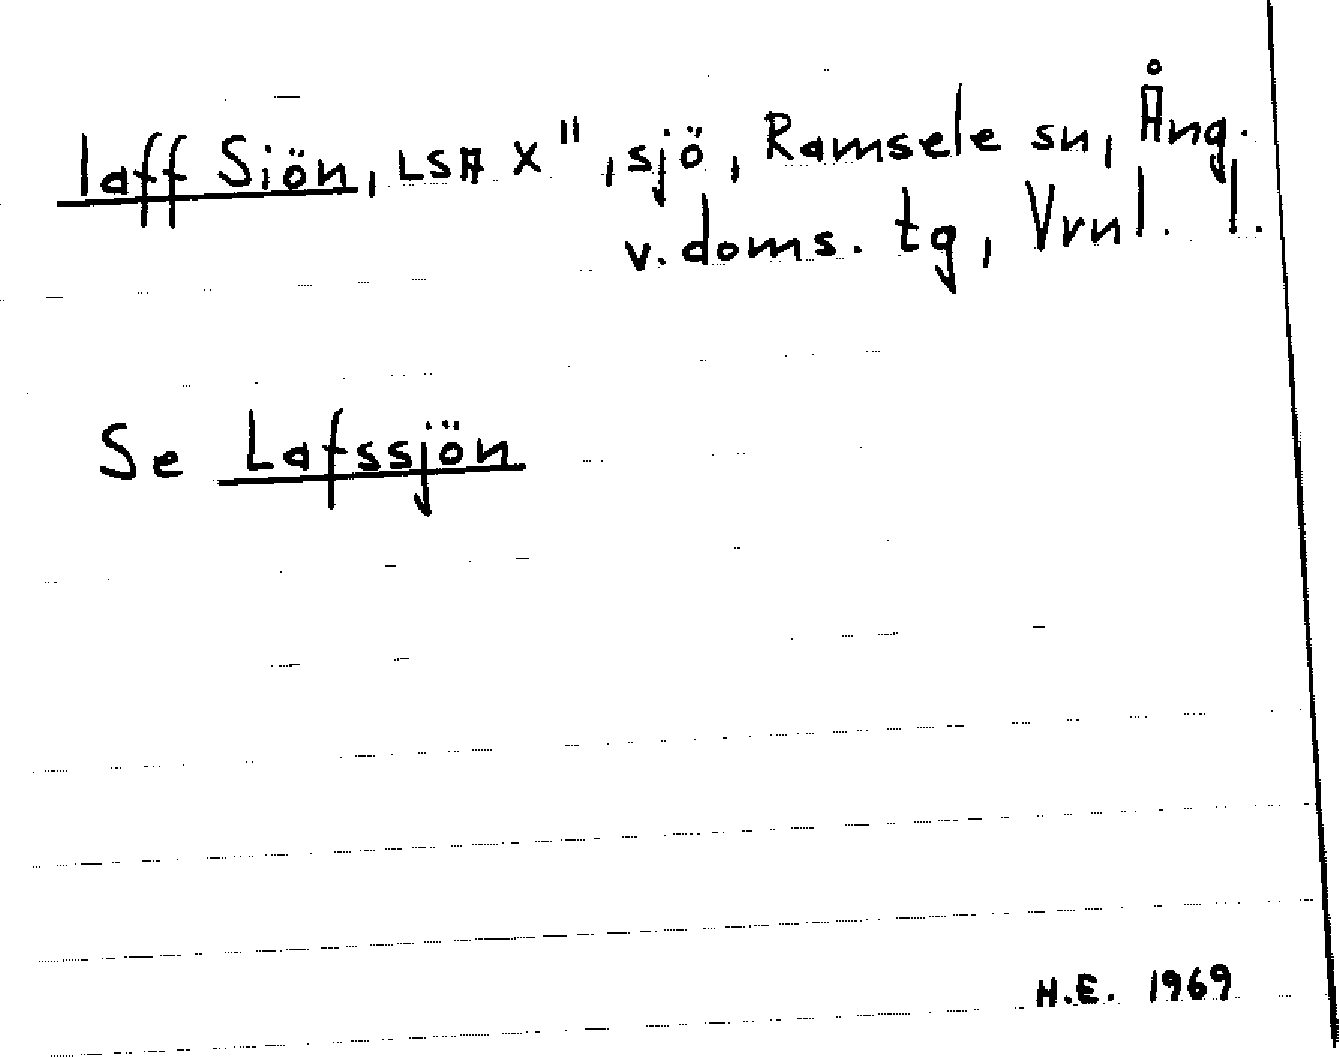 laff Siön, LSA X", sjö, Ramsele sn, Ång.
v. doms. tg, Vrnl. l.
Se Lafssjön
H.E. 1969